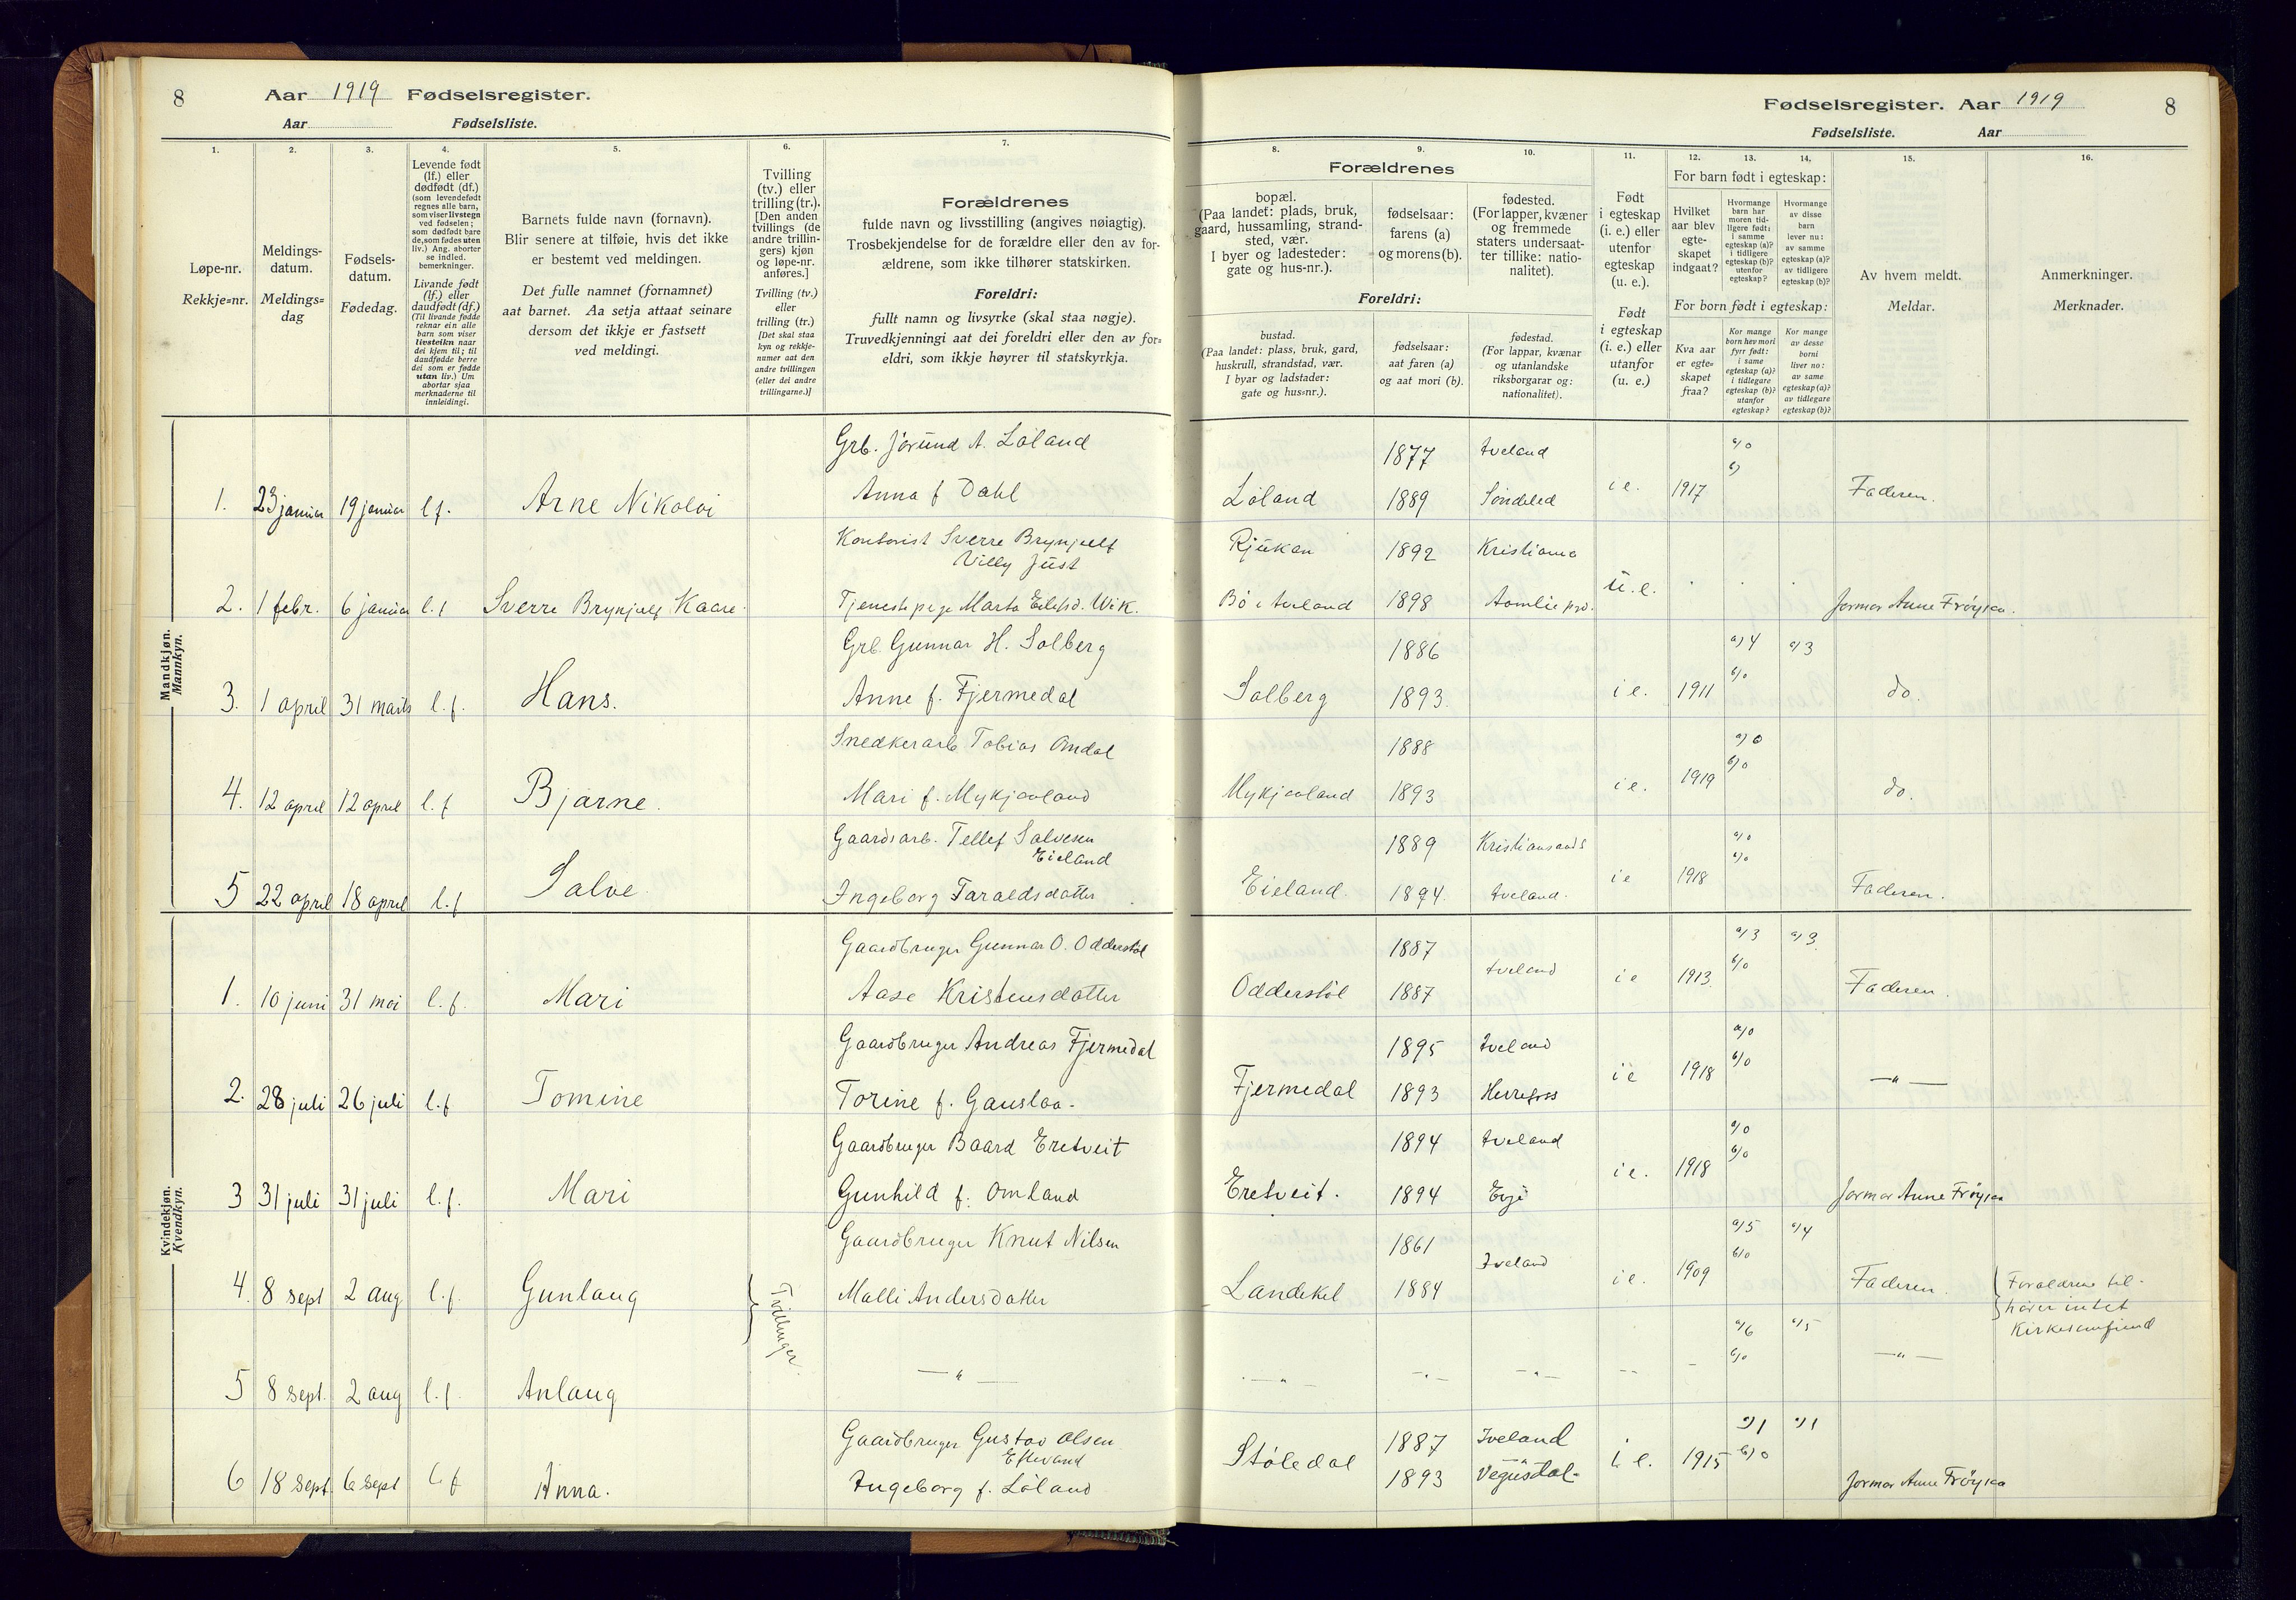 8 Aar 1919 Fødselsregister.
Aar Fødselsliste.
1. 2. 3. 4. 5. 6. 7.
Løpe-nr.
Rekkje=nr.
Meldings-
datum.
Meldings=
dag
Fødsels-
datum.
Fødedag.
Levende født
(lf.) eller
dødfødt (df.)
(som levendefødt
regnes alle barn,
som viser livstegn
ved fødselen;
som dødfødt bare
de, som fødes uten
liv.) Ang. aborter
se indled.
bemerkninger.
Livande født
(lf.) eller
daudfødt (df.)
(Til livande fødde
reknar ein alle
barn som viser
livsteikn naar
dei kjem til; til
daudfødde berre
dei som er fødde
utan liv.) Um
abortar sjaa
merknaderne til
innleidingi.
Barnets fulde navn (fornavn).
Blir senere at tilføie, hvis det ikke
er bestemt ved meldingen.
Det fulle namnet (fornamnet)
aat barnet. Aa setja attaat seinare
dersom det ikkje er fastsett
ved meldingi.
Tvilling
(tv.) eller
trilling (tr.).
[Den anden
tvillings (de
andre trillin-
gers) kjøn
og løpe-nr.
anføres.]
Tvilling (tv.)
eller
trilling (tr.)
[Det skal staa
kyn og rekkje-
numer aat den
andre tvillingen
(eller dei andre
trillingarne.)]
Forældrenes
fulde navn og livsstilling (angives nøiagtig).
Trosbekjendelse for de forældre eller den av for-
ældrene, som ikke tilhører statskirken.
Foreldri:
fullt namn og livsyrke (skal staa nøgje).
Truvedkjenningi aat dei foreldri eller den av for=
eldri, som ikkje høyrer til statskyrkja.
Mandkjøn.
Mannkyn.
Grb. Jørund A. Løland
1. 23 januar 19 januar l f. Arne Nikolai Anna f Dahl
Kontorist Sverre Brynjulf
Villy Just
2. 1 febr. 6 januar l. f Sverre Brynjulf Kaare. Tjenestepige Marta Eilefsd. Wik.
Grb. Gunnar H. Solberg
3. 1 april 31 marts l. f. Hans. Anne f. Fjermedal
Snedkerarb Tobias Omdal
4. 12 april 12 april l. f Bjarne. Mari f. Mykjaaland
Gaardsarb. Tellef Salvesen
Eieland
5 22 april 18 april l. f Salve. Ingeborg Taraldsdatter
Kvindekjøn.
Kvendkyn.
Gaardbruger Gunnar O. Odderstøl
1. 10 juni 31 mai l. f. Mari Aase Kristensdatter
Gaardbruger Andreas Fjermedal
2. 28 juli 26 juli l. f Tomine Torine f. Gauslaa.
Gaardbruger Baard Eretveit
3 31 juli 31 juli l. f. Mari Gunhild f. Omland
Gaardbruger Knut Nilsen
4. 8 sept 2 aug l. f. Gunlaug Tvillinger. Malli Andersdatter
5 8 sept. 2 aug l. f. Anlaug — " —
Gaardbruger Gustav Olsen
Eftevand
6 18 sept. 6 sept l. f Anna. Ingeborg f. Løland
Fødselsregister. Aar 1919 8
Fødselsliste. Aar
8. 9. 10. 11. 12. 13. 14. 15. 16.
Forældrenes
bopæl.
(Paa landet: plads, bruk,
gaard, hussamling, strand-
sted, vær.
I byer og ladesteder:
gate og hus-nr.).
fødselsaar:
farens (a)
og morens (b).
fødested.
(For lapper, kvæner
og fremmede
staters undersaat-
ter tillike: natio-
nalitet).
Foreldri:
bustad.
(Paa landet: plass, bruk, gard,
huskrull, strandstad, vær.
I byar og ladstader:
gate og hus=nr.).
fødselsaar:
aat faren (a)
og aat mori (b).
fødestad.
(For lappar, kvænar
og utanlandske
riksborgarar og:
nationalitet).
Født
i egteskap
(i. e.) eller
utenfor
egteskap
(u. e.).
Født
i egteskap
(i. e.) eller
utanfor
(u. e.).
For barn født i egteskap:
Hvilket
aar blev
egte-
skapet
indgaat?
Hvormange
barn har
moren tid-
ligere født:
i samme
egteskap (a)?
i tidligere
egteskap (b)?
utenfor
egteskap?
Hvormange
av disse
barn
lever nu:
av samme
egteskap (a)?
av tidligere
egteskap (b)?
For born født i egteskap:
Kva aar
er egte-
skapet
fraa?
Kor mange
born hev mori
fyrr født:
i same
egteskap (a)?
i tidlegare
egteskap (b)?
utanfor
egteskap?
Kor mange
av desse
borni
liver no:
av same
egteskap (a)?
av tidlegare
egteskap (b)?
Av hvem meldt.
Meldar.
Anmerkninger.
Merknader.
1877 Iveland a/0
Løland 1889 Søndeled i e. 1917 b) Faderen.
Rjukan 1892 Kristiania
Bø i Iveland 1898 Aamli prd. u. e. Jormor Anne Frøysaa.
1886 a) 4 a) 3
Solberg 1893. i e. 1911 b/0 do.
1888 a) 0
Mykjaaland 1893 i e. 1919 b/0 do.
1889 Kristiansand a/0
Eieland. 1894. Iveland. i e 1918 b/0 Faderen.
1887 a/3 a/3.
Odderstøl 1887 Iveland i e 1913. b/0 Faderen.
1895 Iveland a/0
Fjermedal 1893 Herrefoss i e 1918 b/0 — " —
1894 Iveland a/0
Eretveit. 1894 Evje i e. 1918 b/0 Jormor Anne Frøysaa
1861 a/5 a/4
Landekil 1884 Iveland i e. 1909 b/0 Faderen. Foraldrene til-
hører intet
Kirkesamfund
a/6 a/5
— " — — " — — " — -- - b/0 — " —
1887 Iveland a) 1 a) 1
Støledal 1893 Vegusdal- i. e. 1915 b) 0 Jormor Anne Frøysaa